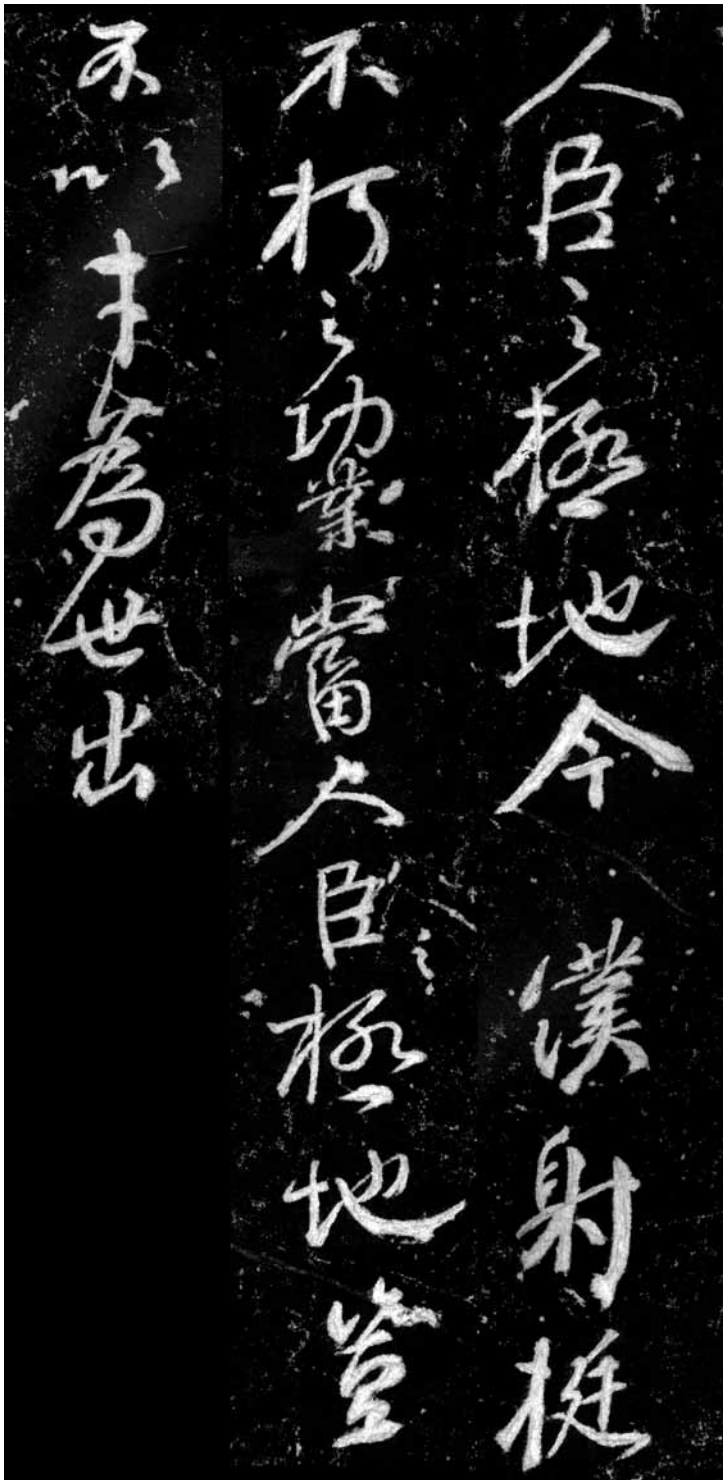 人臣之極地今 僕射挺
不朽之功業當人臣之極地豈
不以才為世出